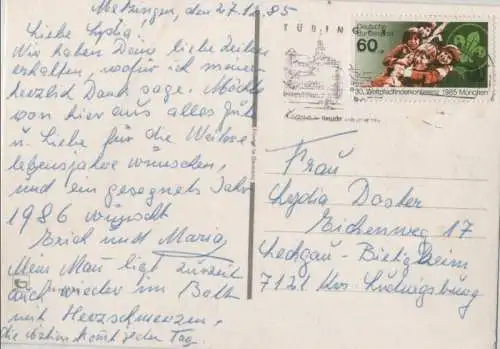 Metzingen, den 27.12.85
Liebe Lydia
Wir haben Deine liebe Zeilen
erhalten, wofür ich meinen
herzlich Dank sage. Möchte
von hier aus alles Gute
u. Liebe für die
lebensjahre wünschen,
und ein gesegnets Jahr
1986 wünscht
Erich und Maria
Mein Man liegt zurzeit
auch wieder im Bett
mit Herzschmerzen,
die komt jeden Tag.
TÜBIN
Deutsche
Bundespost
60
30. Weltpfadfinderkonferenz 1985 München
Frau
Lydia Doster
Eichenweg 17
Lechgau-Bietigheim
7121 Krs Ludwigsburg